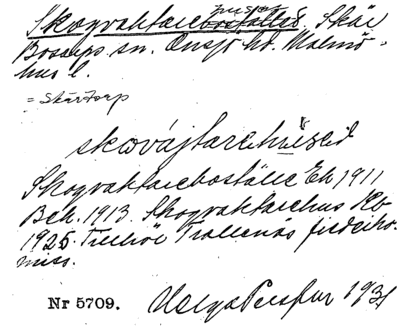 Skogvaktarebostället. Skär
huset
Bosarps sn. Onsjö hd. Malmö-
hus l.
= Skärtorp
skovájtarehused
Skogvaktareboställe Ek 1911
Bek. 1913. Skogvaktarehus Rb
1925. Tillhör Trollenäs fideiko-
miss.
Nr 5709.
Helga 1931